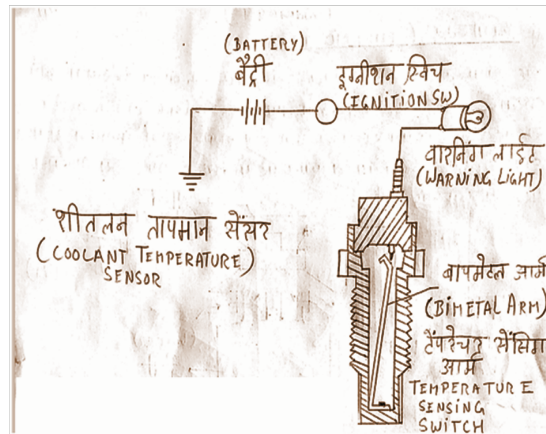 (BATTERY)
बैट्री
इग्नीशन स्विच
(EGNITION SW)
वारनिंग लाईट
(WARNING LIGHT)
शीतलन तापमान सेंसर
(COOLANT TEMPERATURE)
SENSOR
बायमेटल आर्म
(BIMETAL ARM)
टैंपरेचर सेंसिंग
आर्म
TEMPERATURE
SENSING
SWITCH